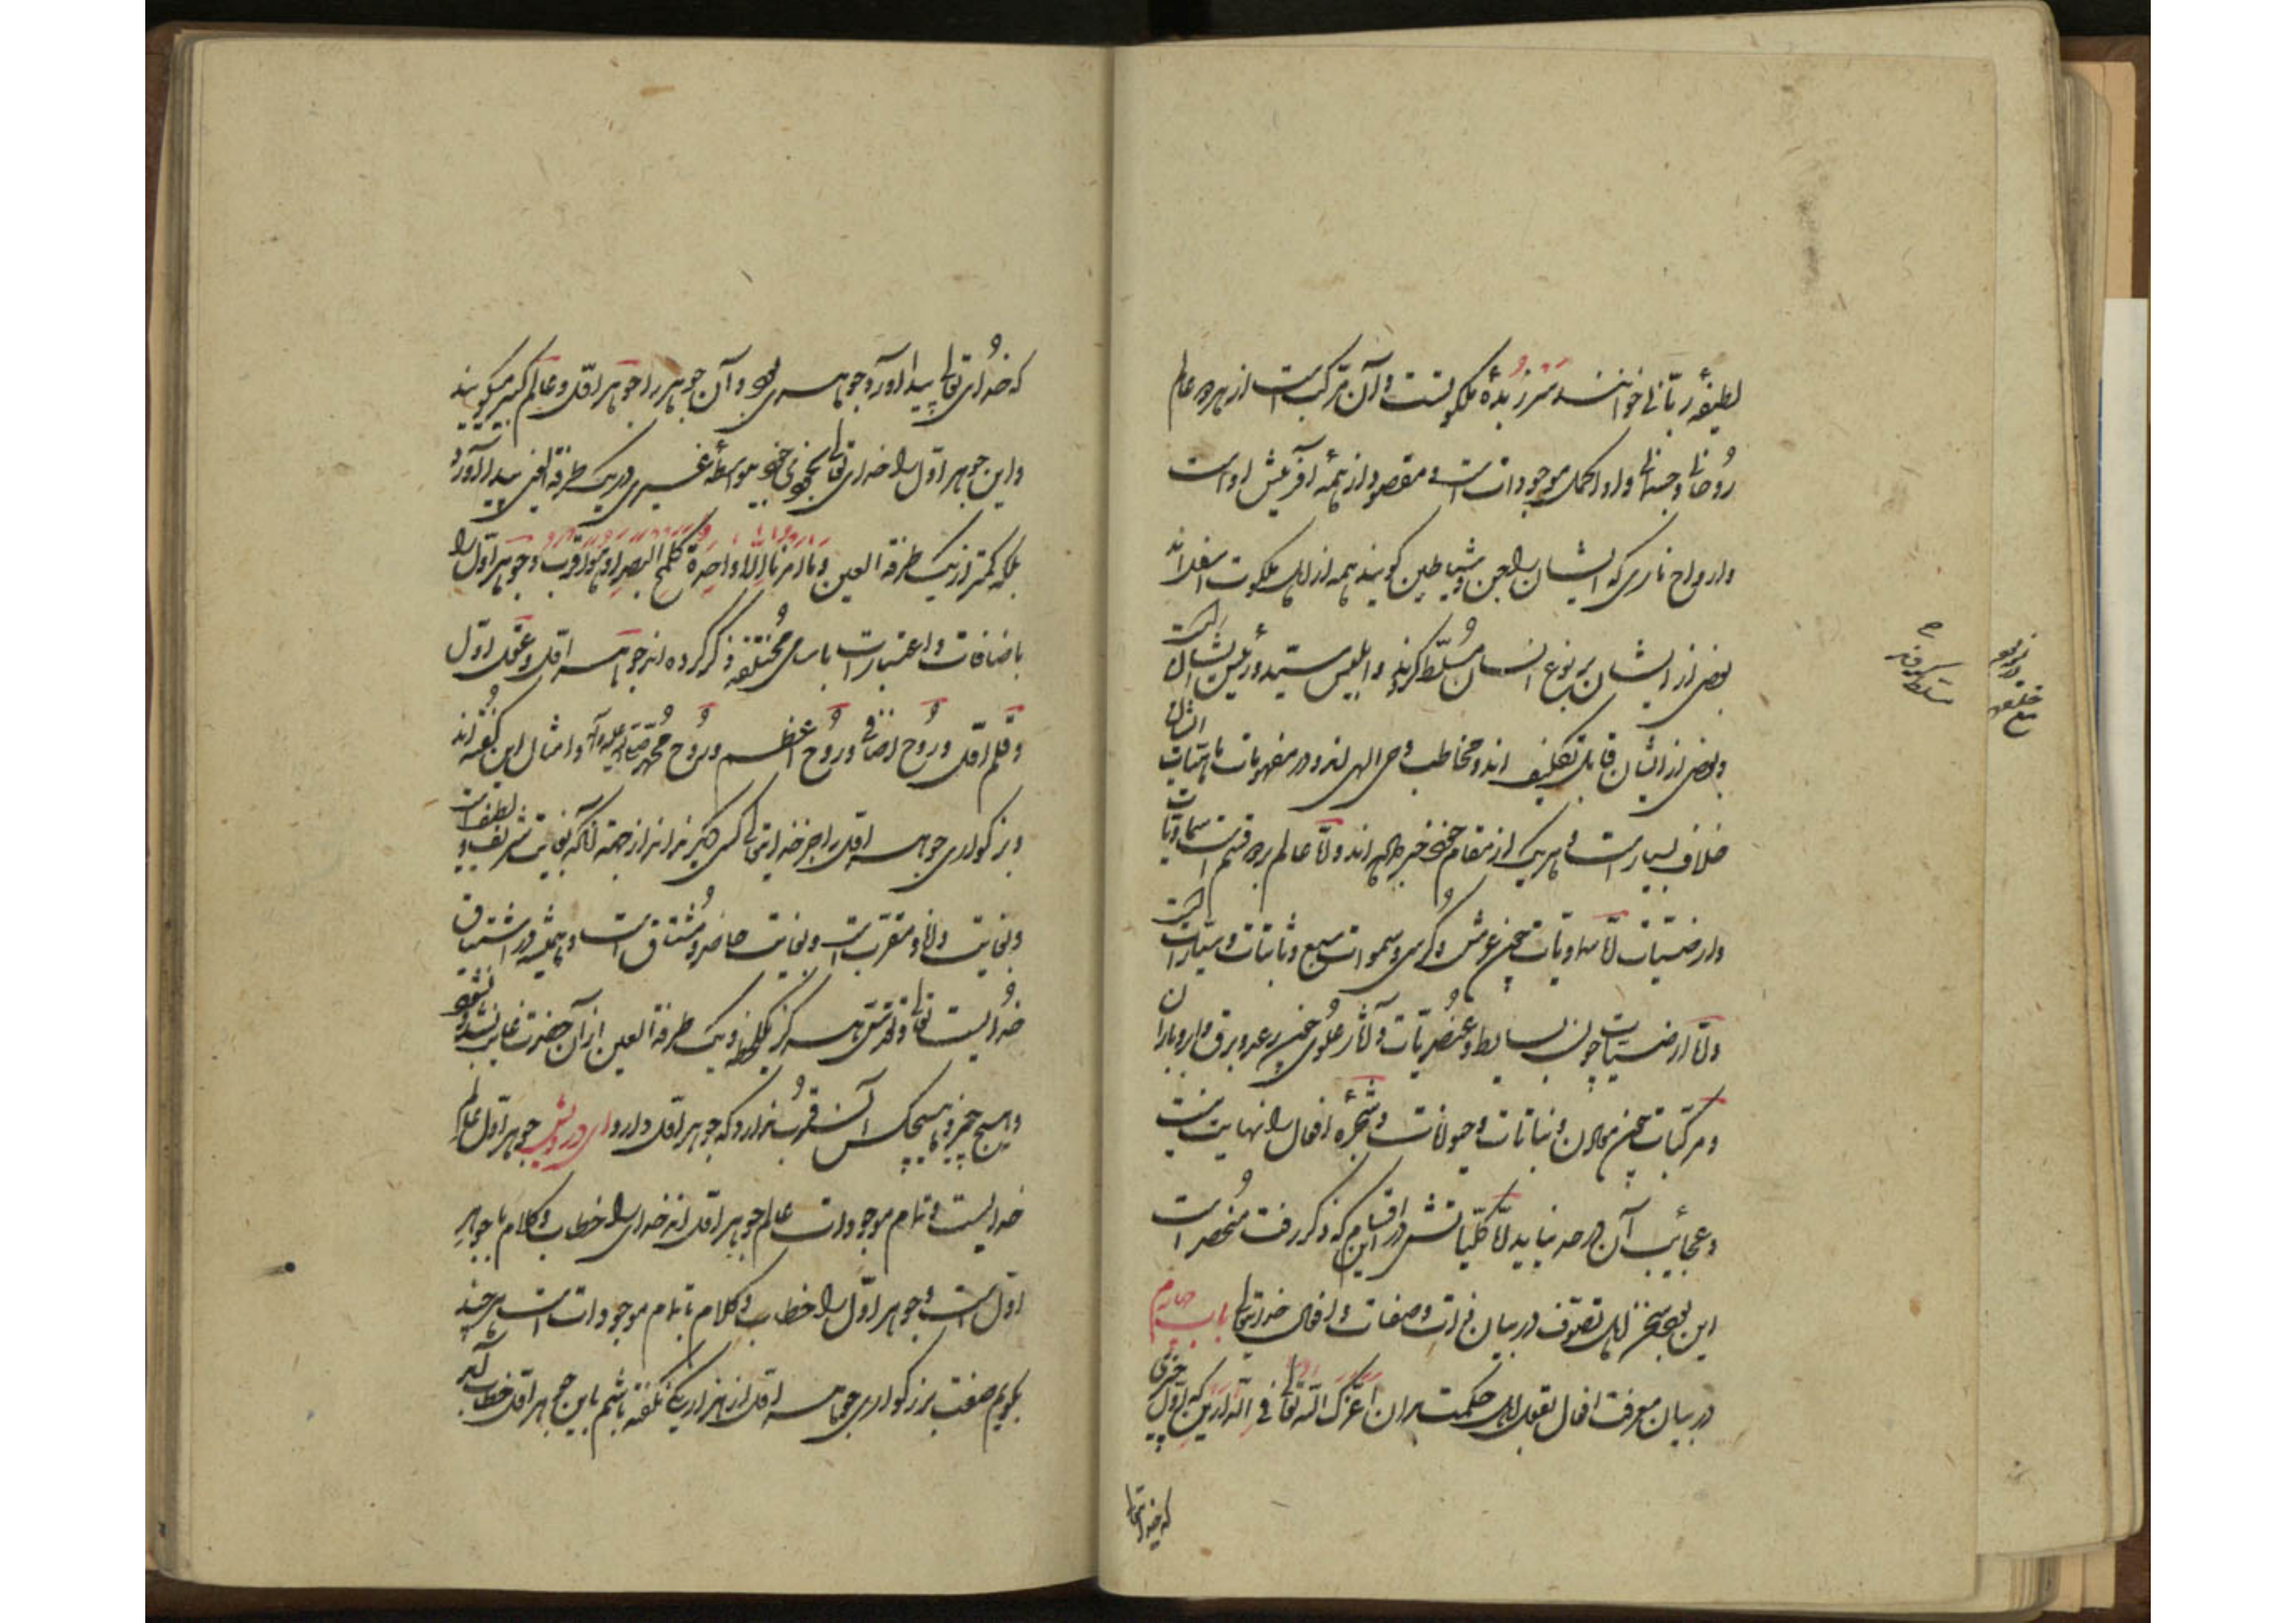 لطیفهٔ ربّانی خوانند و سر زبدهٔ ملکوتست و آن مرکب است از هر دو عالم
رُوحانی و جسمانی و او اکمل موجودات است و مقصود از همه آفرینش او است
و ارواح ناری که ایشان را جن و شیاطین گویند همه از اهل ملکوت اسفل‌اند
بعضی از ایشان بر نوع انسان مُسلّط کردند و ابلیس سیّد و رئیس ایشان است
و بعضی از ایشان قابل تکلیف اند و مخاطب وحی الهی اند و در مفهومات ماهیّات ایشان
خلاف بسیار است و هر یک از مقام خود خبر داده اند و امّا عالم بر دو قسم است سماویات
و ارضیّات امّا سماویّات چون عرش و کُرسی و سموات سبع و ثابتات و سیّارات است
و امّا ارضیّات چون بسایط و عنصُریّات و آثار عُلوی چون رعد و برق و ابر و باران
و مرکّبات چون معادن و نباتات و حیوانات و شجرهٔ افعال را نهایت نیست
و عجائب آن در حد نیاید امّا کلیّاتش در این اقسام که ذکر رفت مُنحصر است
این بود سخن اهل تصوّف در بیان ذات و صفات و افعال خدایتعالی باب چهارم
در بیان معرفت افعال بقول اهل حکمت بدان اعزّک اللّه تعالی فی الدّارین که اوّل چیزی
که خدایتعالی
که خدُای تعالی پیدا آورد جوهری بود و آن جوهر را جوهر اوّل و عالم کبیر میگویند
و این جوهر اوّل را خدای تعالی بخودی خود بیواسطهٔ غیری در یک طرفة العین پیدا آورد
بلکه کمتر از یک طرفة العین و ما امرنا الّا واحدة کلمح البصر او هو اقرب و جوهر اوّل را
باضافات و اعتبارات باسامی مُختلفه ذکر کرده اند جوهر اوّل و عقل اوّل
و قلم اوّل و رُوح اضافی و رُوح اعظم و رُوح مُحمّد صلی الله علیه و آله و امثال این گفته‌اند
و بزرگواری جوهر اوّل را جز خدایتعالی کسی دیگر نداند از جهة آنکه بغایت شریف و لطیف است
و بغایت دانا و مقرب است و بغایت حاضر و مُشتاق است و همیشه در اشتیاق
خدُایست تعالی و تقدّس هرگز یک لحظه و یک طرفة العین از آن حضرت غایب نشده و نشود
و هیچ چیز و هیچکس آن قُرب ندارد که جوهر اوّل دارد و ای درویش جوهر اوّل عالم
خدایست و تمام موجودات عالم جوهر اوّل اند خدای را خطاب و کلام با جوهر
اوّل است و جوهر اوّل را خطاب و کلام با تمام موجودات است هر چند
بگویم صفت بزرگواری جوهر اوّل از هزار یکی نگفته باشم باین جوهر اوّل خطاب آمد